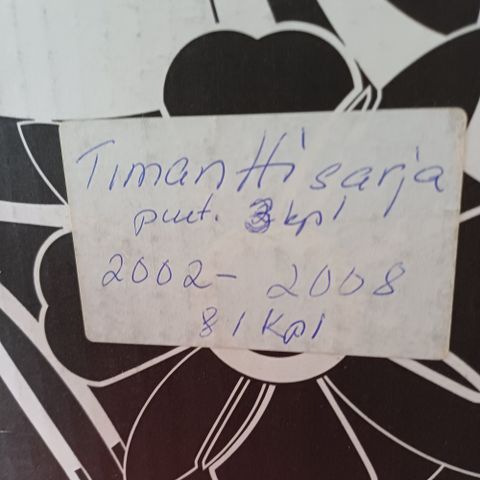 Timantti sarja
puut. 3 kpl
2002 - 2008
81 kpl